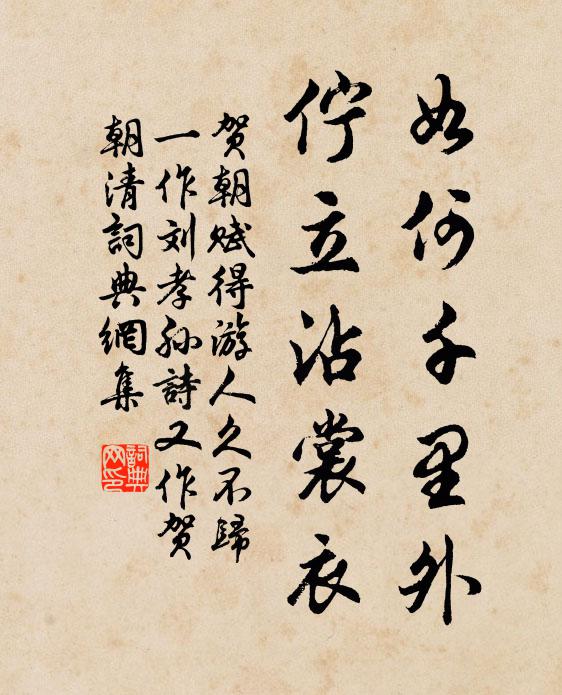 如何千里外
佇立沾裳衣
贺朝赋得游人久不歸
一作刘孝孙詩又作贺
朝清詞典網集
詞典
网印